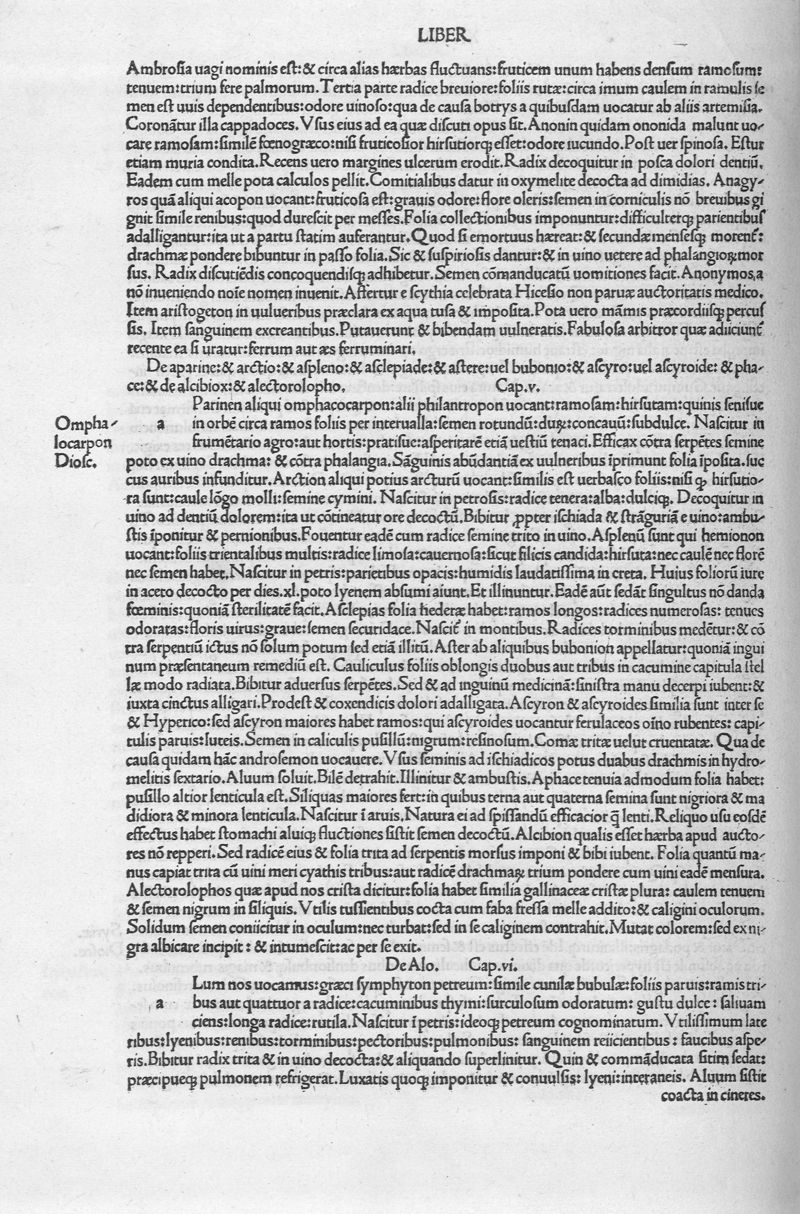 LIBER
Ambrosia uagi nominis est:& circa alias hærbas fluctuans:fruticem unum habens densum ramosum:
tenuem:trium fere palmorum.Tertia parte radice breuiore:foliis rutæ:circa imum caulem in ramulis se
men est uuis dependentibus:odore uinoso:qua de causa botrys a quibusdam uocatur ab aliis artemisia.
Coronãtur illa cappadoces.Vsus eius ad ea quæ discuti opus sit.Anonin quidam ononida malunt uo-
care ramosam:similẽ fœnogræco:nisi fruticosior hirsutiorq; esset:odore iucundo.Post uer spinosa.Estur
etiam muria condita.Recens uero margines ulcerum erodit.Radix decoquitur in posca dolori dentiũ.
Eadem cum melle pota calculos pellit.Comitialibus datur in oxymelite decocta ad dimidias. Anagy-
ros quã aliqui acopon uocant:fruticosa est:grauis odore:flore oleris:semen in corniculis nõ breuibus gi
gnit simile renibus:quod durescit per messes.Folia collectionibus imponuntur:difficulterq; parientibus
adalligantur:ita ut a partu statim auferantur.Quod si emortuus hæreat:& secundæ mensesq; morent̃:
drachmæ pondere bibuntur in passo folia.Sic & suspiriosis dantur:& in uino uetere ad phalangioꝝ mor
sus. Radix discutiẽdis concoquendisq; adhibetur.Semen cõmanducatũ uomitiones facit.Anonymos,a
nõ inueniendo noĩe nomen inuenit.Affertur e scythia celebrata Hicesio non paruæ auctoritatis medico.
Item aristogeton in uulneribus præclara ex aqua tusa & imposita.Pota uero mãmis præcordiisq; percus
sis. Item sanguinem excreantibus.Putauerunt & bibendam uulneratis.Fabulosa arbitror quæ adiiciunt̃
recente ea si uratur:ferrum aut æs ferruminari.
De aparine:& arctio:& aspleno:& asclepiade:& astere:uel bubonio:& ascyro:uel ascyroide: & pha-
ce:& de alcibiox:& alectorolopho. Cap.v.
Parinen aliqui omphacocarpon:alii philantropon uocant:ramosam:hirsutam:quinis senisue
Ompha- a in orbẽ circa ramos foliis per interualla:semen rotundũ:duꝝ:concauũ:subdulce. Nascitur in
locarpon frumẽtario agro:aut hortis:pratisue:asperitatẽ etiã uestiũ tenaci.Efficax cõtra serpẽtes semine
Diosc. poto ex uino drachma: & cõtra phalangia.Sãguinis abũdantiã ex uulneribus ĩprimunt folia ĩposita.suc
cus auribus infunditur.Arction aliqui potius arcturũ uocant:similis est uerbasco foliis:nisi q̃ hirsutio-
ra sunt:caule lõgo molli:semine cymini. Nascitur in petrosis:radice tenera:alba:dulciq;. Decoquitur in
uino ad dentiũ dolorem:ita ut cõtineatur ore decoctũ.Bibitur ꝓpter ischiada & strãguriã e uino:ambu-
stis ĩponitur & pernionibus.Fouentur eadẽ cum radice semine trito in uino.Asplenũ sunt qui hemionon
uocant:foliis trientalibus multis:radice limosa:cauernosa:sicut filicis candida:hirsuta:nec caulẽ nec florẽ
nec semen habet.Nascitur in petris:parietibus opacis:humidis laudatissima in creta. Huius foliorũ iure
in aceto decocto per dies.xl.poto lyenem absumi aiunt.Et illinuntur.Eadẽ aũt sedãt singultus nõ danda
fœminis:quoniã sterilitatẽ facit.Asclepias folia hederæ habet:ramos longos:radices numerosas: tenues
odoratas:floris uirus:graue:semen securidace.Nascit̃ in montibus.Radices torminibus medẽtur:& cõ
tra serpentiũ ictus nõ solum potum sed etiã illitũ.Aster ab aliquibus bubonion appellatur:quoniã ingui
num præsentaneum remediũ est. Cauliculus foliis oblongis duobus aut tribus in cacumine capitula stel
læ modo radiata.Bibitur aduersus serpẽtes.Sed & ad inguinũ medicinã:sinistra manu decerpi iubent:&
iuxta cinctus alligari.Prodest & coxendicis dolori adalligata.Ascyron & ascyroides similia sunt inter se
& Hyperico:sed ascyron maiores habet ramos:qui ascyroides uocantur ferulaceos oĩno rubentes: capi-
tulis paruis:luteis.Semen in caliculis pusillũ:nigrum:resinosum.Comæ tritæ uelut cruentatæ. Qua de
causa quidam hãc androsemon uocauere.Vsus seminis ad ischiadicos potus duabus drachmis in hydro-
melitis sextario.Aluum soluit.Bilẽ detrahit.Illinitur & ambustis.Aphace tenuia admodum folia habet:
pusillo altior lenticula est.Siliquas maiores fert:in quibus terna aut quaterna semina sunt nigriora & ma
didiora & minora lenticula.Nascitur ĩ aruis.Natura ei ad spissandũ efficacior q̃ lenti.Reliquo usu eosdẽ
effectus habet stomachi aluiq; fluctiones sistit semen decoctũ.Alcibion qualis esset hærba apud aucto-
res nõ repperi.Sed radicẽ eius & folia trita ad serpentis morsus imponi & bibi iubent. Folia quantũ ma-
nus capiat trita cũ uini meri cyathis tribus:aut radicẽ drachmaꝝ trium pondere cum uini eadẽ mensura.
Alectorolophos quæ apud nos crista dicitur:folia habet similia gallinaceæ cristæ plura: caulem tenuem
& semen nigrum in siliquis.Vtilis tussientibus cocta cum faba fressa melle addito:& caligini oculorum.
Solidum semen coniicitur in oculum:nec turbat:sed in se caliginem contrahit.Mutat colorem:sed ex ni-
gra albicare incipit : & intumescit:ac per se exit.
De Alo. Cap.vi.
Lum nos uocamus:græci symphyton petreum:simile cunilæ bubulæ:foliis paruis:ramis tri-
a bus aut quattuor a radice:cacuminibus thymi:surculosum odoratum: gustu dulce : saliuam
ciens:longa radice:rutila.Nascitur ĩ petris:ideoq; petreum cognominatum. Vtilissimum late
ribus:lyenibus:renibus:torminibus:pectoribus:pulmonibus: sanguinem reiicientibus : faucibus aspe-
ris.Bibitur radix trita & in uino decocta:& aliquando superlinitur. Quin & commãducata sitim sedat:
præcipueq; pulmonem refrigerat.Luxatis quoq; imponitur & conuulsis: lyeni:interaneis. Aluum sistit
coacta in cineres.